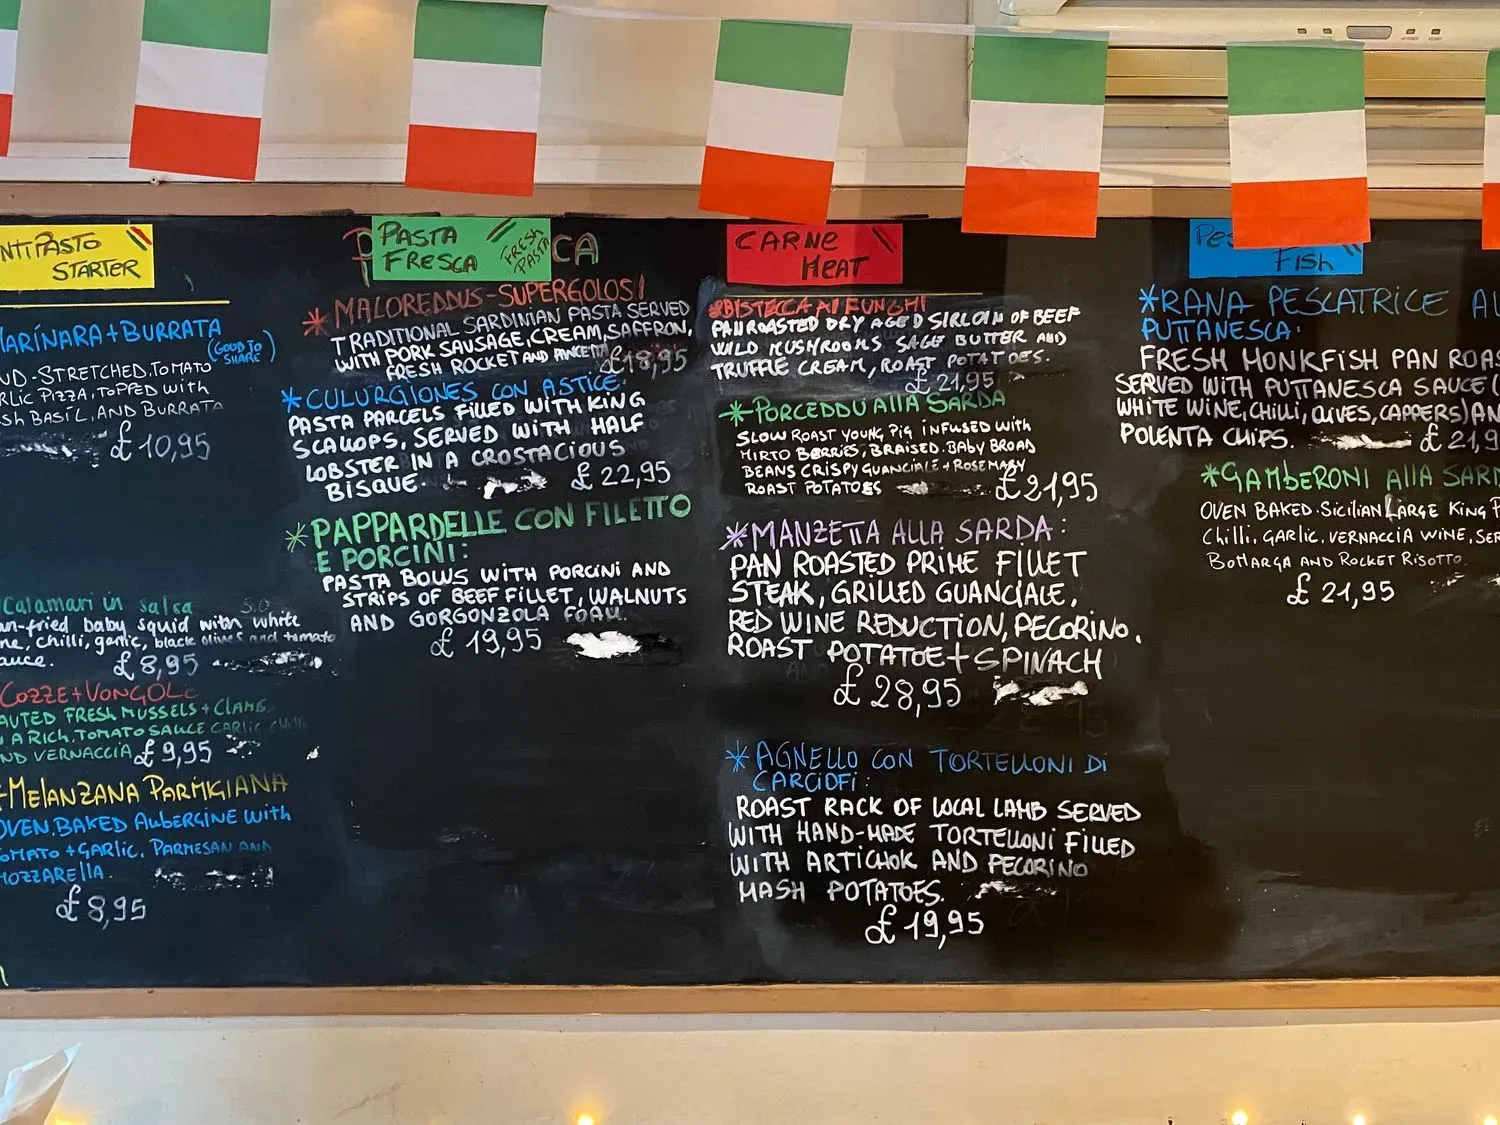 NTIPASTO
STARTER
MARINARA + BURRATA
(GOOD TO
SHARE)
ND-STRETCHED, TOMATO
RLIC PIZZA, TOPPED WITH
SH BASIL, AND BURRATA
£10,95
CALAMARI IN SALSA
an-fried baby squid with white
ne, chilli, garlic, black olives and tomato
auce. £8,95
COZZE + VONGOLE
AUTED FRESH MUSSELS + CLAMS,
A RICH, TOMATO SAUCE GARLIC CHILLI
ND VERNACCIA £9,95
MELANZANA PARMIGIANA
OVEN.BAKED AUBERGINE WITH
TOMATO + GARLIC, PARMESAN AND
MOZZARELLA.
£8,95
PASTA
FRESCA
FRESH
PASTA
CA
*MALOREDDUS-SUPERGOLOSI
TRADITIONAL SARDINIAN PASTA SERVED
WITH PORK SAUSAGE, CREAM, SAFFRON,
FRESH ROCKET AND PANCETTA £18,95
*CULURGIONES CON ASTICE:
PASTA PARCELS FILLED WITH KING
SCALLOPS, SERVED WITH HALF
LOBSTER IN A CROSTACIOUS
BISQUE. £22,95
*PAPPARDELLE CON FILETTO
E PORCINI:
PASTA BOWS WITH PORCINI AND
STRIPS OF BEEF FILLET, WALNUTS
AND GORGONZOLA FOAM.
£19,95
CARNE
MEAT
*BISTECCA AI FUNGHI
PAN ROASTED DRY AGED SIRLOIN OF BEEF
WILD MUSHROOMS SAGE BUTTER AND
TRUFFLE CREAM, ROAST POTATOES.
£21,95
*PORCEDDU ALLA SARDA
SLOW ROAST YOUNG PIG INFUSED WITH
MIRTO BERRIES, BRAISED.BABY BROAD
BEANS CRISPY GUANCIALE + ROSEMARY
ROAST POTATOES £21,95
*MANZETTA ALLA SARDA:
PAN ROASTED PRIME FILLET
STEAK, GRILLED GUANCIALE,
RED WINE REDUCTION, PECORINO,
ROAST POTATOE + SPINACH
£28,95
*AGNELLO CON TORTELLONI DI
CARCIOFI:
ROAST RACK OF LOCAL LAMB SERVED
WITH HAND-MADE TORTELLONI FILLED
WITH ARTICHOK AND PECORINO
MASH POTATOES.
£19,95
PES
FISH
*RANA PESCATRICE AL
PUTTANESCA:
FRESH MONKFISH PAN ROAS
SERVED WITH PUTTANESCA SAUCE (
WHITE WINE, CHILLI, OLIVES, CAPPERS) AN
POLENTA CHIPS. £21,9
*GAMBERONI ALLA SARD
OVEN BAKED.SICILIAN LARGE KING P
CHILLI, GARLIC, VERNACCIA WINE, SER
BOTTARGA AND ROCKET RISOTTO.
£21,95